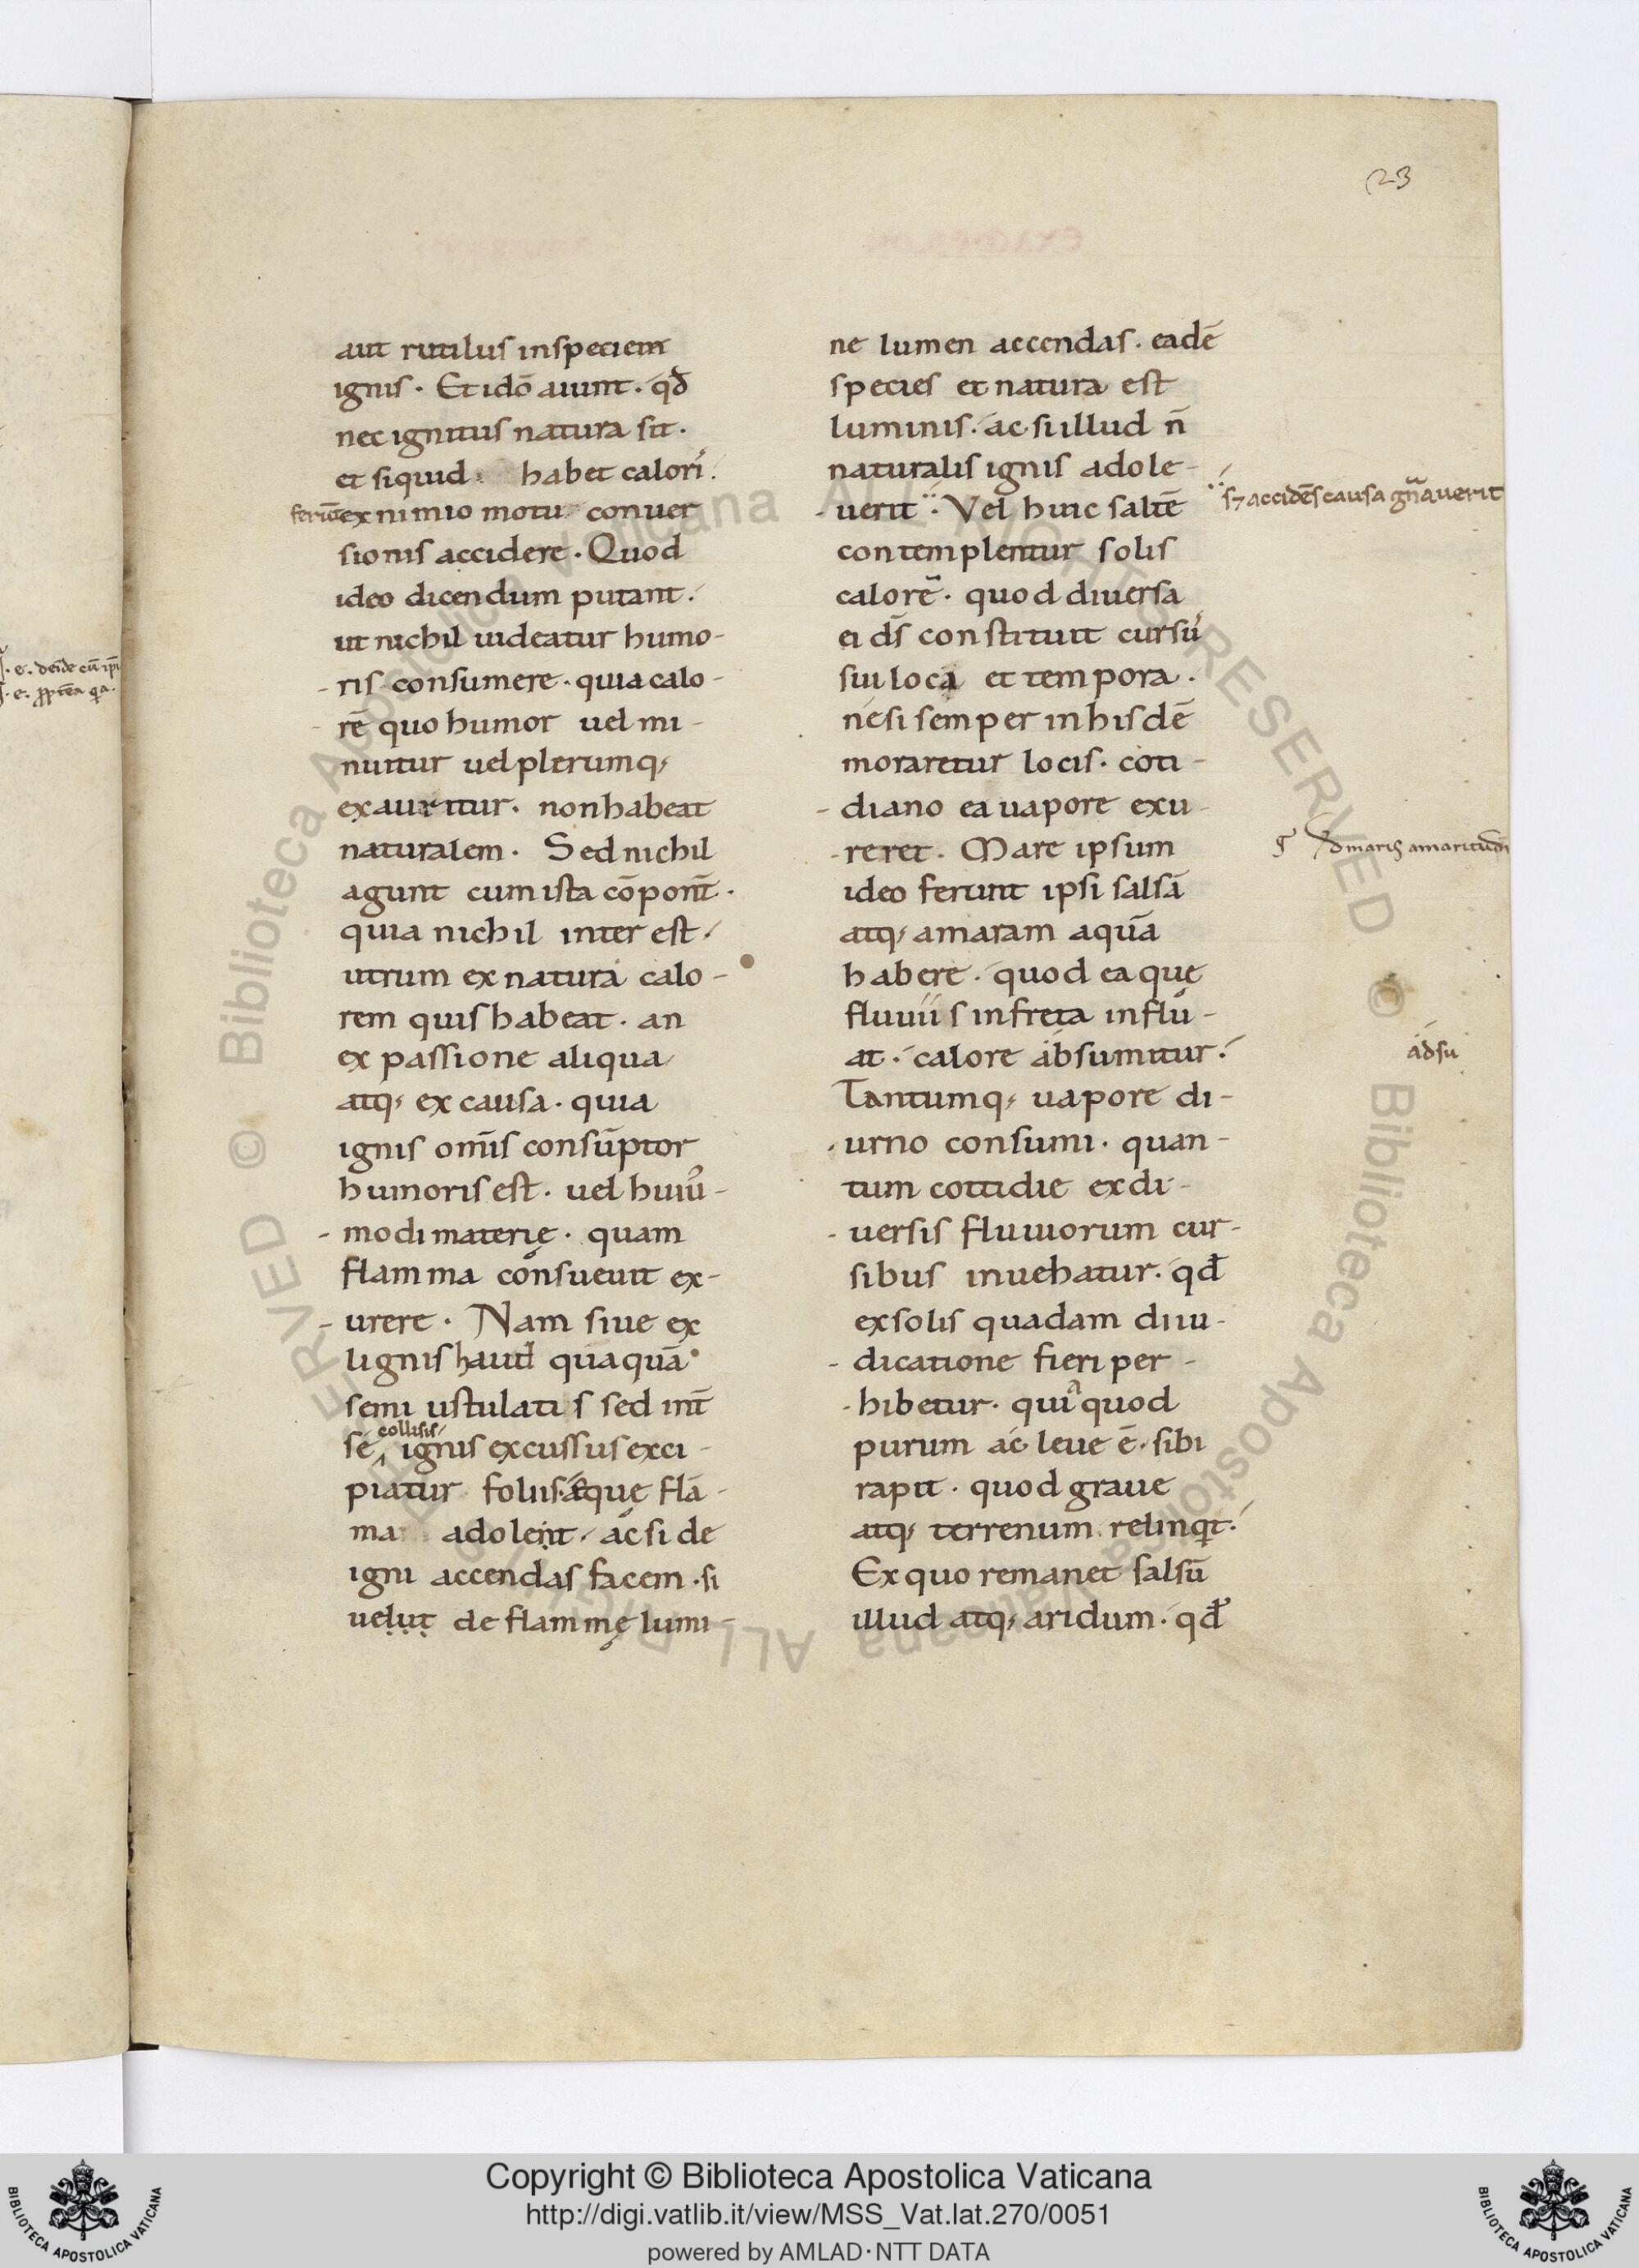 23
aut rutilus inspeciem
ignis · Et idō aiunt · qđ
nec ignitus natura sit ·
et siquid habet calori
feriu͞ ex nimio motu conuer
sionis accidere · Quod
ideo dicendum putant ·
ut nichil uideatur humo-
-ris consumere · quia calo-
rē quo humor uel mi-
nuitur uel plerumq;
exauritur · non habeat
naturalem · Sed nichil
agunt cum ista cōponn̄t ·
quia nichil inter est ·
utrum ex natura calo-
rem quis habeat · an
ex passione aliqua
atq; ex causa · quia
ignis om̄is consūptor
humoris est · uel huiu᷒-
-modi materię · quam
flamma consueuit ex-
-urere · Nam siue ex
lignis haud quaquā
semi ustulatis sed int̄
collisis
sé ignis excussus exci-
piatur foliis · ęque flā-
ma adolent · ac si de
igni accendas facem · si
uelut de flammę lumi-
ne lumen accendas · eadē
species et natura est
luminis · ac si illud n̄
naturalis ignis adole-
-uerit · Vel huic saltē
contemplentur solis
calorē · quod diuersa
ei dſ̄ constituit cursu᷒
sui loca et tempora ·
ne si semper in hisdē
moraretur locis · coti-
-diano ea uapore exu-
-reret · Mare ipsum
ideo ferunt ipsi salsā
atq; amaram aquā
habere · quod ea quę
fluuiis infreta influ-
at · calore absumitur ·
Tantumq; uapore di-
-urno consumi · quan-
tum cottidie ex di-
-uersis fluuiorum cur-
sibus inuehatur · qđ
ex solis quadam diiu-
-dicatione fieri per-
-hibetur · qui a quod
purum ac leue ē · sibi
rapit · quod graue
atq; terrenum relinqt̄ ·
Ex quo remanet salsū
illud atq; aridum · qđ
s; accidēs causa gn̄auerit
đ maris amaritudi
adsu
· e · deīde cū ipı
Copyright © Biblioteca Apostolica Vaticana
http://digi.vatlib.it/view/MSS_Vat.lat.270/0051
powered by AMLAD·NTT DATA
BIBLIOTECA APOSTOLICA VATICANA
BIBLIOTECA APOSTOLICA VATICANA
© Biblioteca Apostolica Vaticana ALL RIGHTS RESERVED
© Biblioteca Apostolica Vaticana ALL RIGHTS RESERVED